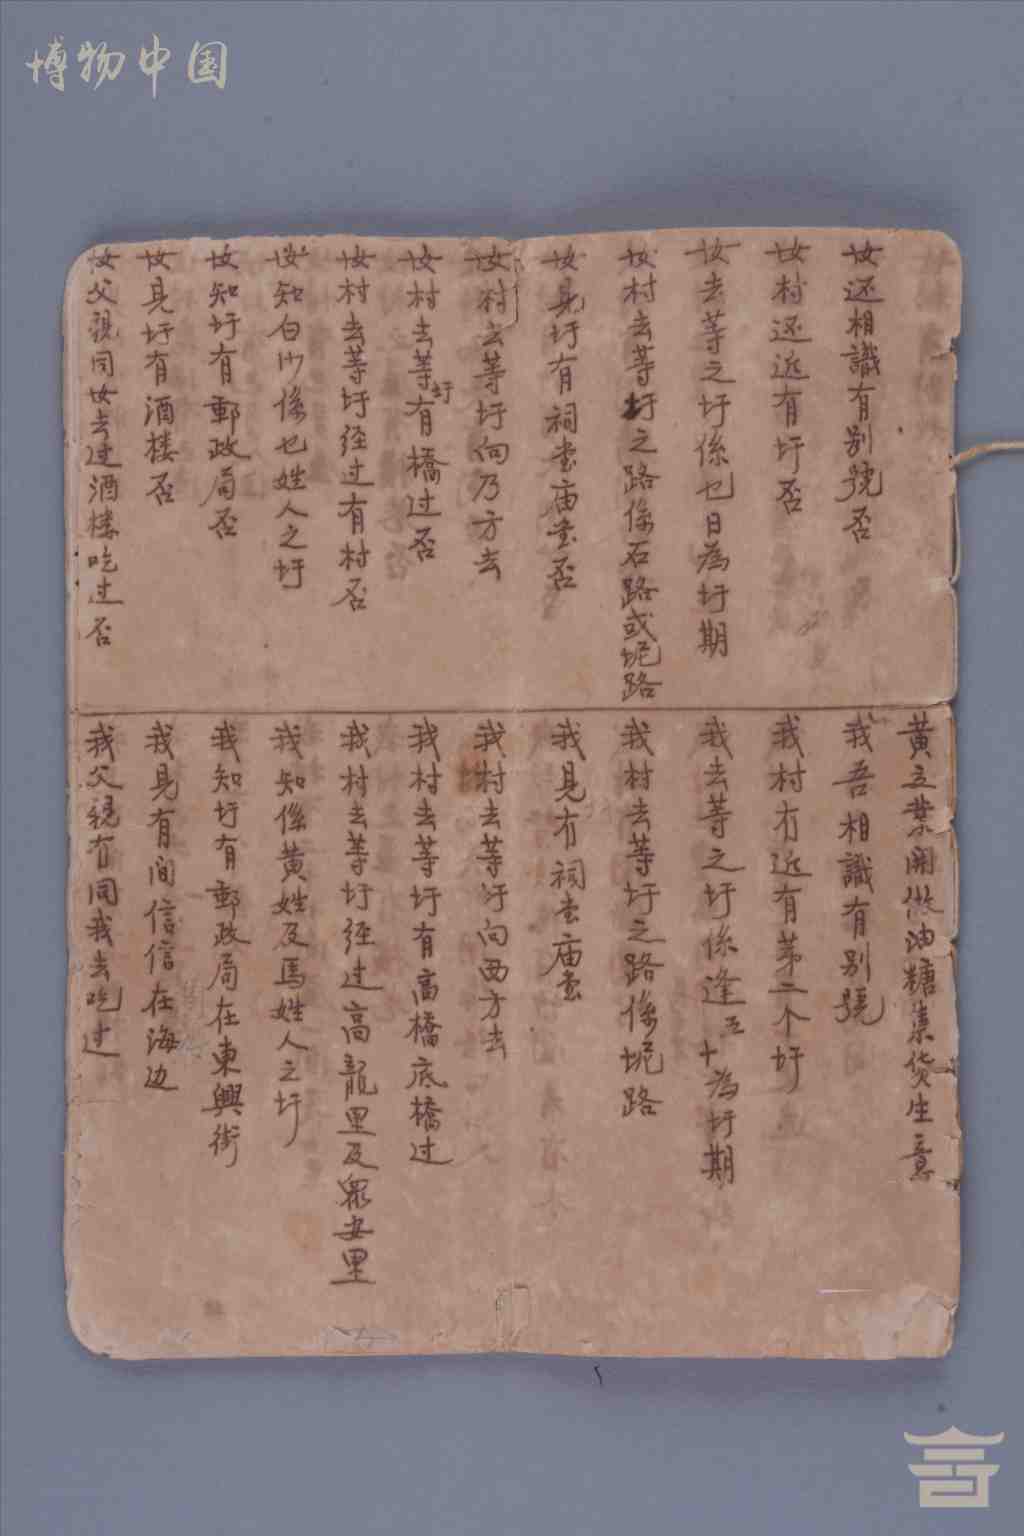 博物中国
黄立業開做油糖集货生意
女还相識有别號否
我吾相識有别號
女村还近有圩否
我村冇近有苐二个圩
女去等之圩係乜日為圩期
我去等之圩係逢五十為圩期
女村去等圩之路係石路或坭路
我村去等圩之路係坭路
女見圩有祠堂庙堂否
我見冇祠堂庙堂
女村去等圩向乃方去
我村去等圩向西方去
女村去等圩有橋过否
我村去等圩有高橋底橋过
女村去等圩经过有村否
我村去等圩经过高龍里及眾安里
女知白沙係乜姓人之圩
我知係黄姓及馬姓人之圩
女知圩有郵政局否
我知圩有郵政局在東興街
女見圩有酒楼否
我見有间信信在海边
女父親同女去过酒楼吃过否
我父親冇同我去吃过